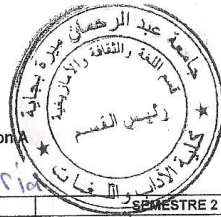 جامعة عبد الرحمان ميرة بجاية
قسم اللغة والثقافة والأمازيغية
رئيس القسم
كلية الآداب واللغات
on A
SEMESTRE 2